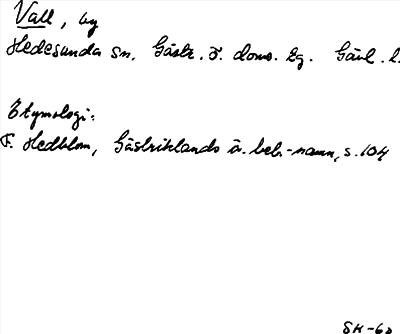 Vall, by
Hedesunda sn. Gästr. ö. doms. tg. Gävl. l.
Etymologi:
F. Hedblom, Gästriklands ä. beb.-namn, s. 104
SH-60